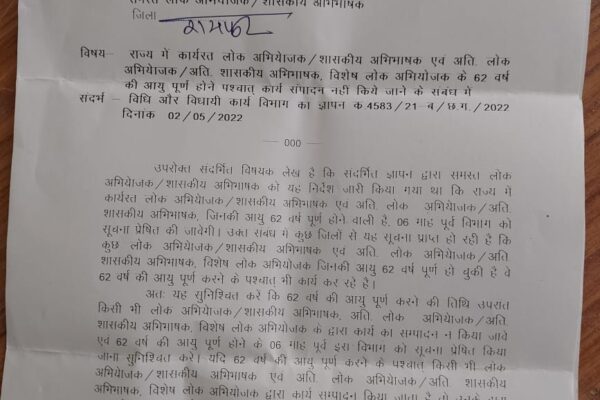 समस्त लोक अभियोजक/शासकीय अभिभाषक
जिला रायपुर
विषय– राज्य में कार्यरत लोक अभियोजक/शासकीय अभिभाषक एवं अति. लोक
अभियोजक/अति. शासकीय अभिभाषक, विशेष लोक अभियोजक के 62 वर्ष
की आयु पूर्ण होने पश्चात् कार्य संपादन नही किये जाने के संबंध में
संदर्भ – विधि और विधायी कार्य विभाग का ज्ञापन क.4583/21-ब/छ.ग./2022
दिनांक 02/05/2022
—— 000 ——
उपरोक्त संदर्भित विषयक लेख है कि संदर्भित ज्ञापन द्वारा समस्त लोक
अभियोजक/शासकीय अभिभाषक को यह निर्देश जारी किया गया था कि राज्य में
कार्यरत लोक अभियोजक/शासकीय अभिभाषक एवं अति. लोक अभियोजक/अति.
शासकीय अभिभाषक, जिनकी आयु 62 वर्ष पूर्ण होने वाली है, 06 माह पूर्व विभाग को
सूचना प्रेषित की जावेगी। उक्त संबंध में कुछ जिलों से यह सूचना प्राप्त हो रही है कि
कुछ लोक अभियोजक/शासकीय अभिभाषक एवं अति. लोक अभियोजक/अति
शासकीय अभिभाषक, विशेष लोक अभियोजक जिनकी आयु 62 वर्ष पूर्ण हो चुकी है वे
62 वर्ष की आयु पूर्ण करने के पश्चात् भी कार्य कर रहे है।
अतः यह सुनिश्चित करें कि 62 वर्ष की आयु पूर्ण करने की तिथि उपरांत
किसी भी लोक अभियोजक/शासकीय अभिभाषक, अति. लोक अभियोजक/अति.
शासकीय अभिभाषक, विशेष लोक अभियोजक के द्वारा कार्य का सम्पादन न किया जावे
एवं 62 वर्ष की आयु पूर्ण होने के 06 माह पूर्व इस विभाग को सूचना प्रेषित किया
जाना सुनिश्चित करें। यदि 62 वर्ष की आयु पूर्ण करने के पश्चात् किसी भी लोक
अभियोजक/शासकीय अभिभाषक एवं अति. लोक अभियोजक/अति. शासकीय
अभिभाषक, विशेष लोक अभियोजक द्वारा कार्य संपादन किया जाता है तो उनके द्वारा